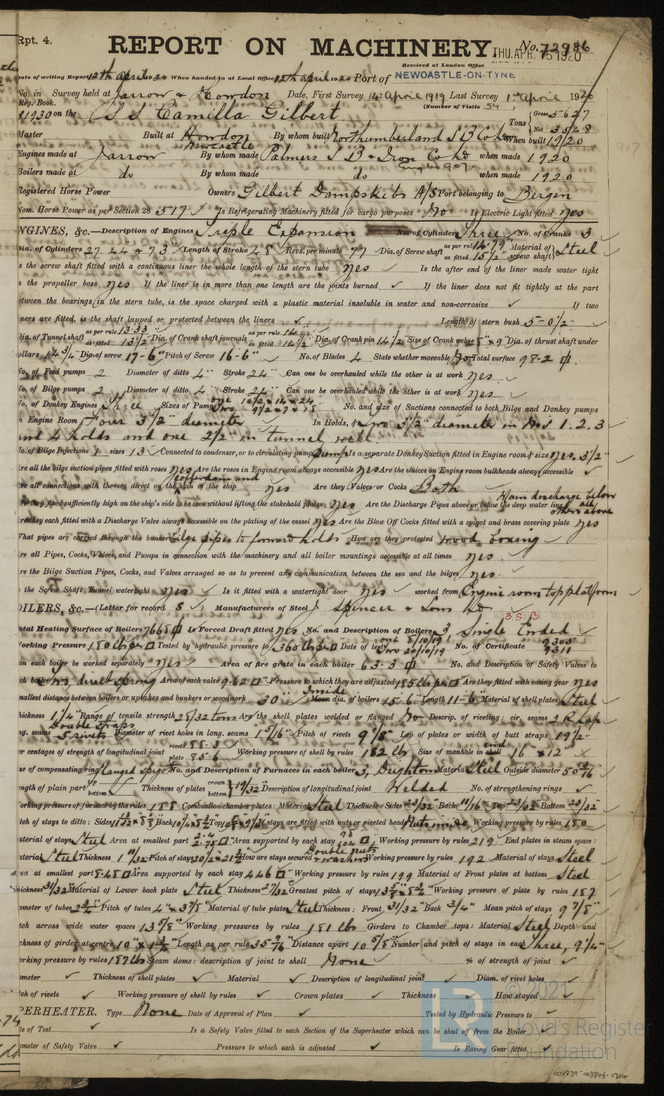 Rpt. 4.
REPORT ON MACHINERY
No. 72986
THU. APR. 15 1920
Received at London Office
Date of writing Report 12th April 1920 When handed in at Local Office 12th April 1920 Port of NEWCASTLE-ON-TYNE
No. in Survey held at Jarrow & Howdon Date, First Survey 14 April 1919 Last Survey 1st April 1920
Reg. Book. (Number of Visits 54)
41930 on the SS Camilla Gilbert Tons Gross 5627 Net 3528
Master Built at Howdon By whom built Northumberland S B Co Ld When built 1920
Newcastle
Engines made at Jarrow By whom made Palmers S B & Iron Co Ld when made 1920
Boilers made at do By whom made do when made 1920
Registered Horse Power Owners Gilbert Dampskibs A/S Port belonging to Bergen
Nom. Horse Power as per Section 28 517 Is Refrigerating Machinery fitted for cargo purposes No Is Electric Light fitted yes
ENGINES, &c.—Description of Engines Triple Expansion No. of Cylinders Three No. of Cranks 3
Dia. of Cylinders 27. 44 & 73 Length of Stroke 48 Revs. per minute 77 Dia. of Screw shaft as per rule 14.79 as fitted 15 1/2 Material of screw shaft Steel
Is the screw shaft fitted with a continuous liner the whole length of the stern tube yes Is the after end of the liner made water tight
in the propeller boss yes If the liner is in more than one length are the joints burned If the liner does not fit tightly at the part
between the bearings in the stern tube, is the space charged with a plastic material insoluble in water and non-corrosive If two
liners are fitted, is the shaft lapped or protected between the liners Length of stern bush 5-0 1/2
Dia. of Tunnel shaft as per rule 13.33 as fitted 13 1/2 Dia. of Crank shaft journals as per rule 14 as fitted 14 1/2 Dia. of Crank pin 14 1/2 Size of Crank webs Dia. of thrust shaft under
collars 14 3/4 Dia. of screw 17-6 Pitch of Screw 16-6 No. of Blades 4 State whether moveable No Total surface 98.2
No. of Feed pumps 2 Diameter of ditto 4" Stroke 24" Can one be overhauled while the other is at work yes
No. of Bilge pumps 2 Diameter of ditto 4" Stroke 24" Can one be overhauled while the other is at work yes
No. of Donkey Engines Three Sizes of Pumps No. and size of Suctions connected to both Bilge and Donkey pumps
In Engine Room Four 3 1/2" diameter In Holds, &c. Two 3 1/2" diameter in Nos 1. 2. 3
and 4 holds and one 2 1/2" in tunnel well
No. of Bilge Injections 1 sizes 13 Connected to condenser, or to circulating pump Pump Is a separate Donkey Suction fitted in Engine room & size yes. 3 1/2"
Are all the bilge suction pipes fitted with roses yes Are the roses in Engine room always accessible yes Are the sluices on Engine room bulkheads always accessible
Are all connections with the sea direct on the skin of the ship yes Are they Valves or Cocks Both
Are they fixed sufficiently high on the ship's side to be seen without lifting the stokehold plates yes Are the Discharge Pipes above or below the deep water line Main discharge below all others above
Are they each fitted with a Discharge Valve always accessible on the plating of the vessel yes Are the Blow Off Cocks fitted with a spigot and brass covering plate yes
What pipes are carried through the bunkers Bilge pipes to forward holds How are they protected wood boxing
Are all Pipes, Cocks, Valves, and Pumps in connection with the machinery and all boiler mountings accessible at all times yes
Are the Bilge Suction Pipes, Cocks, and Valves arranged so as to prevent any communication between the sea and the bilges yes
Is the Screw Shaft Tunnel watertight yes Is it fitted with a watertight door yes worked from Engine room top platform
BOILERS, &c.—(Letter for record S) Manufacturers of Steel J. Spencer & Sons Ld
Total Heating Surface of Boilers 7668 Is Forced Draft fitted yes No. and Description of Boilers 3 Single Ended
Working Pressure 180 lbs Tested by hydraulic pressure to 360 lbs Date of test No. of Certificate 9303 9311
Can each boiler be worked separately yes Area of fire grate in each boiler 63.3 No. and Description of Safety Valves to
each boiler Two direct spring Area of each valve 9.62 Pressure to which they are adjusted 185 lbs Are they fitted with easing gear yes
Smallest distance between boilers or uptakes and bunkers or woodwork 30" Inside dia. of boilers 15-6 Length 11-6 Material of shell plates Steel
Thickness 1 1/4" Range of tensile strength 28/32 tons Are the shell plates welded or flanged No Descrip. of riveting: cir. seams 2 R Lap
long. seams 5 rivets Diameter of rivet holes in long. seams 1 5/16 Pitch of rivets 9 1/8" Lap of plates or width of butt straps 19 1/2
Per centages of strength of longitudinal joint rivets 88.3 plate 85.6 Working pressure of shell by rules 182 lbs Size of manhole in shell end 16" x 12"
Size of compensating ring Flanged No. and Description of Furnaces in each boiler 3, Deighton Material Steel Outside diameter
Length of plain part Thickness of plates Description of longitudinal joint Welded No. of strengthening rings
Working pressure of furnace by the rules 188 Combustion chamber plates: Material Steel Thickness: Sides 23/32 Back 11/16 Top 23/32 Bottom 23/32
Pitch of stays to ditto: Sides Back Top If stays are fitted with nuts or riveted heads Nuts inside Working pressure by rules 180
Material of stays Steel Area at smallest part Area supported by each stay Working pressure by rules 219 End plates in steam space:
Material Steel Thickness 1 9/32 Pitch of stays How are stays secured Double nuts & washers Working pressure by rules 192 Material of stays Steel
Area at smallest part Area supported by each stay 446 Working pressure by rules 199 Material of Front plates at bottom Steel
Thickness 31/32 Material of Lower back plate Steel Thickness 27/32 Greatest pitch of stays Working pressure of plate by rules 187
Diameter of tubes 2 3/4" Pitch of tubes 4" x 3 7/8" Material of tube plates Steel Thickness: Front 31/32 Back 3/4" Mean pitch of stays 9 7/8"
Pitch across wide water spaces 13 7/8" Working pressures by rules 181 lbs Girders to Chamber tops: Material Steel Depth and
thickness of girder at centre Length as per rule Distance apart 10 7/8" Number and pitch of stays in each Three, 9 1/4"
Working pressure by rules 189 lbs Steam dome: description of joint to shell None % of strength of joint
Diameter Thickness of shell plates Material Description of longitudinal joint Diam. of rivet holes
Pitch of rivets Working pressure of shell by rules Crown plates Thickness How stayed
SUPERHEATER. Type None Date of Approval of Plan Tested by Hydraulic Pressure to
Date of Test Is a Safety Valve fitted to each Section of the Superheater which can be shut off from the Boiler
Diameter of Safety Valve Pressure to which each is adjusted Is Easing Gear fitted
© 2021
Lloyd's Register
Foundation